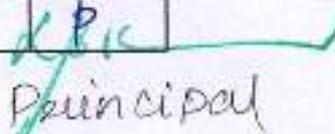 P
Principal